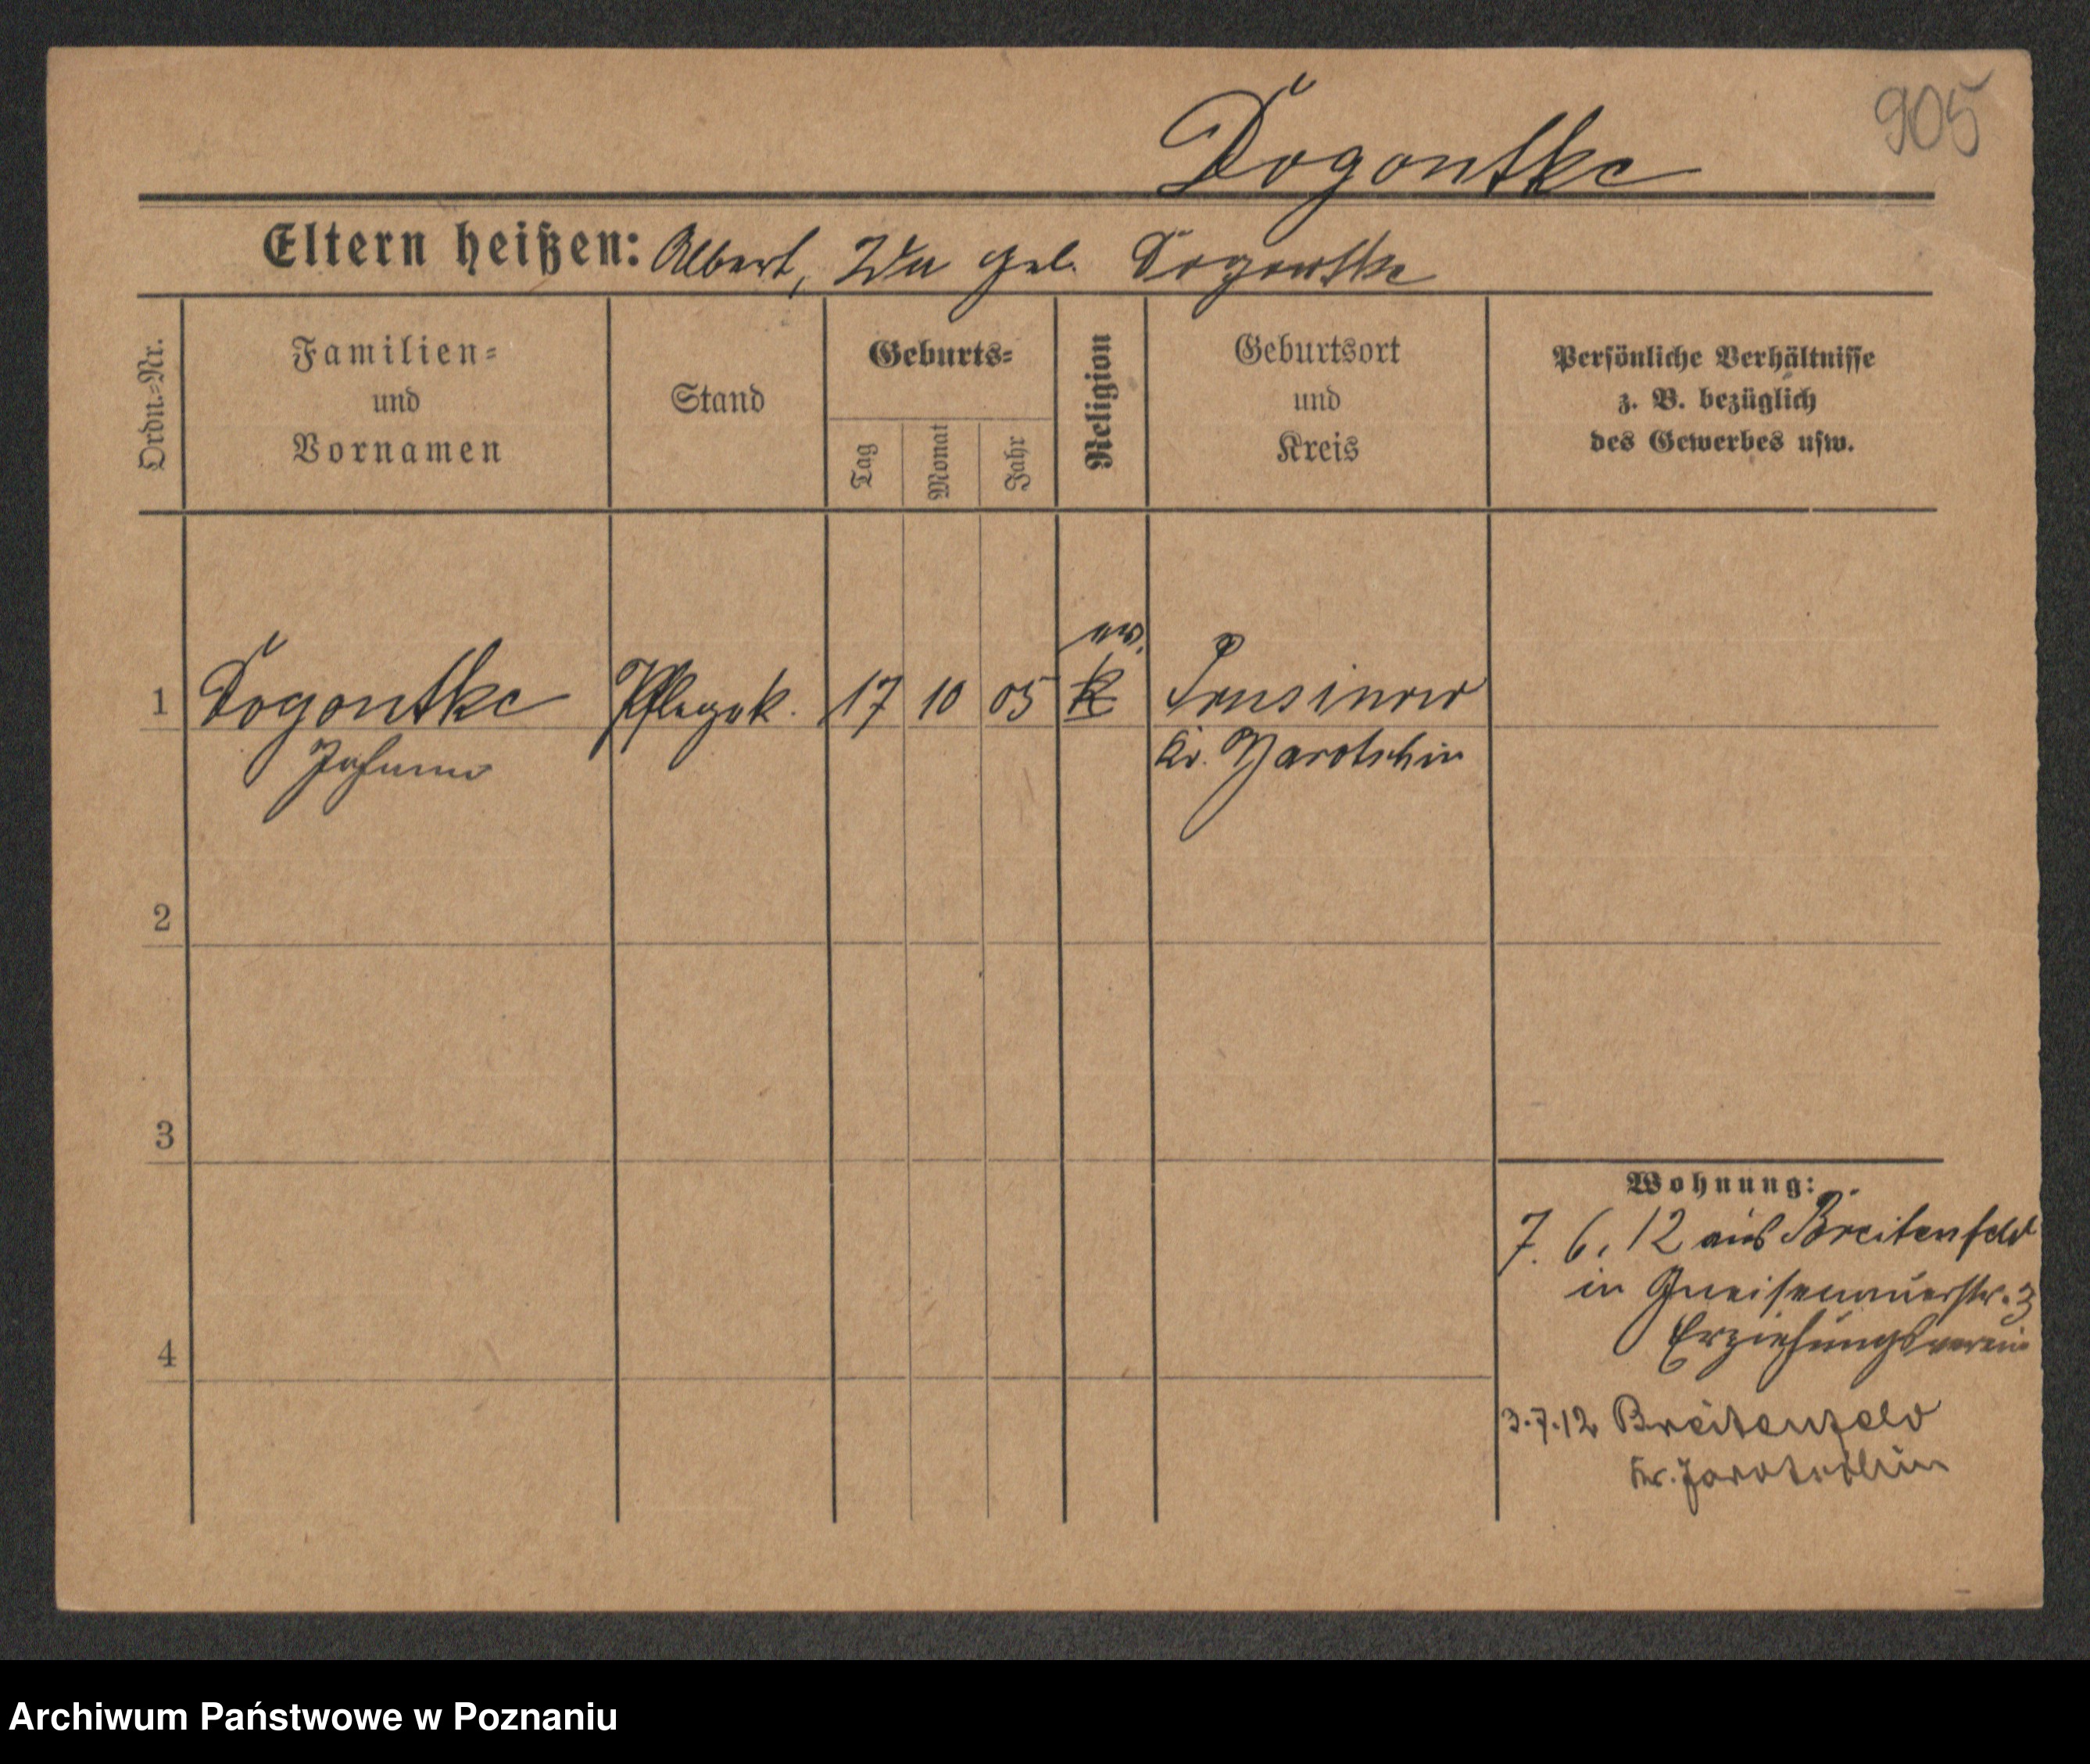 905
Dogontke
Eltern heißen: Albert, Ida geb. Dogontke
Ordn.=Nr.
Familien=
und
Vornamen
Stand
Geburts=
Tag
Monat
Jahr
Religion
Geburtsort
und
Kreis
Persönliche Verhältnisse
z. B. bezüglich
des Gewerbes usw.
ev.
1 Dogontke Pflegek. 17 10 05 K Prusinow
Johanna Kr. Jarotschin
2
3
4
Wohnung:
7. 6. 12 aus Breitenfeld
in Gneisenauerstr. 3
Erziehungsverein
3.7.12 Breitenfeld
Kr. Jarotschin
Archiwum Państwowe w Poznaniu